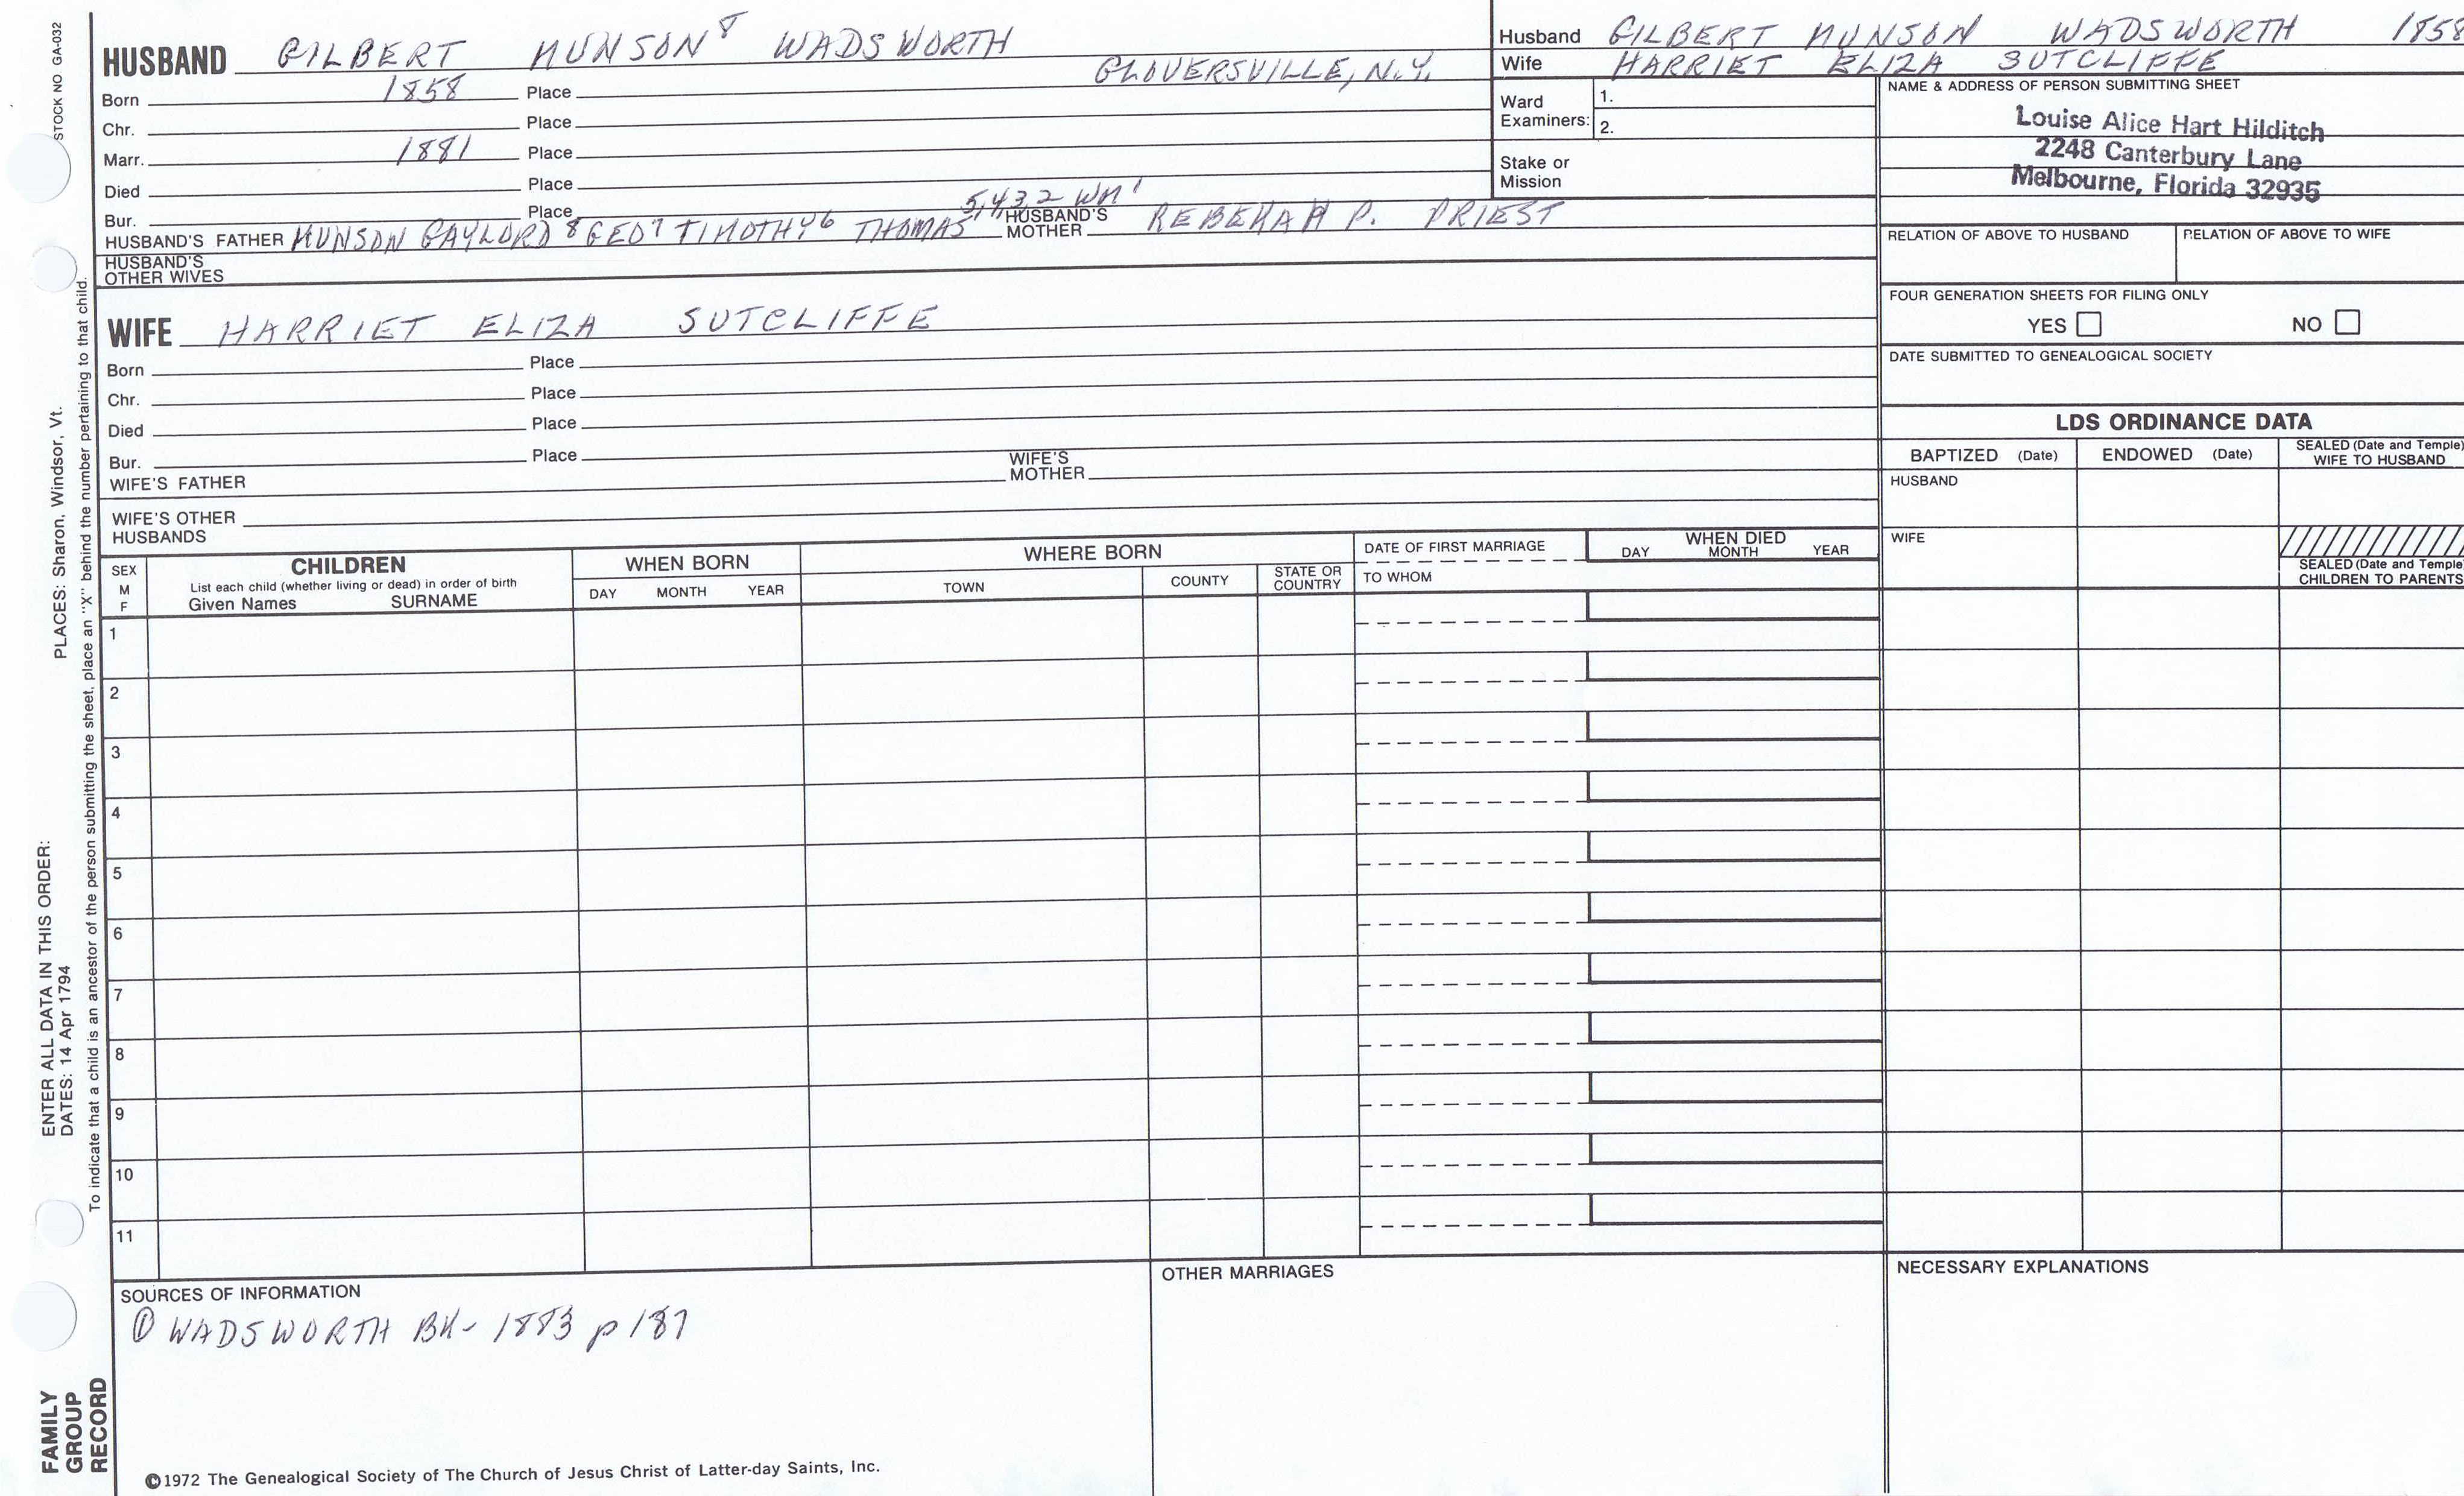 STOCK NO GA-032
HUSBAND GILBERT MUNSON 8 WADSWORTH
Born 1858 Place GLOVERSVILLE, N.Y.
Chr. Place
Marr. 1881 Place
Died Place
Bur. Place
HUSBAND'S FATHER MUNSON GAYLORD 8 GEO 7 TIMOTHY 6 THOMAS 5,4,3,2 WM 1 HUSBAND'S MOTHER REBEKAH P. PRIEST
HUSBAND'S OTHER WIVES
WIFE HARRIET ELIZA SUTCLIFFE
Born Place
Chr. Place
Died Place
Bur. Place
WIFE'S FATHER WIFE'S MOTHER
WIFE'S OTHER HUSBANDS
Husband GILBERT MUNSON WADSWORTH 1858
Wife HARRIET ELIZA SUTCLIFFE
Ward Examiners: 1.
2.
Stake or Mission
NAME & ADDRESS OF PERSON SUBMITTING SHEET
Louise Alice Hart Hilditch
2248 Canterbury Lane
Melbourne, Florida 32935
RELATION OF ABOVE TO HUSBAND RELATION OF ABOVE TO WIFE
FOUR GENERATION SHEETS FOR FILING ONLY
YES NO
DATE SUBMITTED TO GENEALOGICAL SOCIETY
LDS ORDINANCE DATA
BAPTIZED (Date) ENDOWED (Date) SEALED (Date and Temple) WIFE TO HUSBAND
HUSBAND
WIFE
SEALED (Date and Temple) CHILDREN TO PARENTS
SEX M F
CHILDREN
List each child (whether living or dead) in order of birth
Given Names SURNAME
WHEN BORN
DAY MONTH YEAR
WHERE BORN
TOWN COUNTY STATE OR COUNTRY
DATE OF FIRST MARRIAGE
TO WHOM
WHEN DIED
DAY MONTH YEAR
1
2
3
4
5
6
7
8
9
10
11
SOURCES OF INFORMATION
① WADSWORTH BK- 1883 p 187
OTHER MARRIAGES
NECESSARY EXPLANATIONS
©1972 The Genealogical Society of The Church of Jesus Christ of Latter-day Saints, Inc.
FAMILY GROUP RECORD
ENTER ALL DATA IN THIS ORDER:
DATES: 14 Apr 1794 PLACES: Sharon, Windsor, Vt.
To indicate that a child is an ancestor of the person submitting the sheet, place an "X" behind the number pertaining to that child.